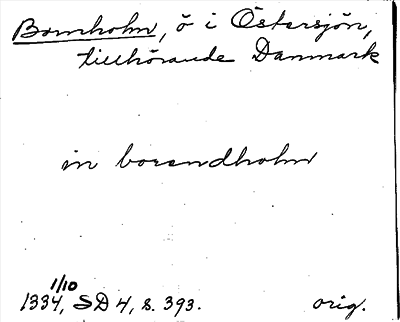 Bornholm, ö i Östersjön,
tillhörande Danmark
in borendholm
1334, 1/10 SD 4, s. 393. orig.